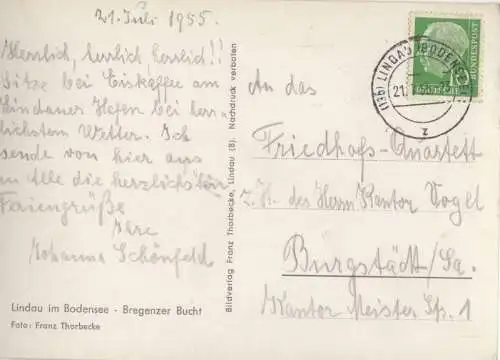 21. Juli 1955.
Herrlich, herrlich, herrlich!!
Sitze bei Eiskaffee am
Lindauer Hafen bei herr-
lichstem Wetter. Ich
sende von hier aus
an alle die herzlichsten
Feriengrüße
Ihre
Johanna Schönfeld
Lindau im Bodensee - Bregenzer Bucht
Foto: Franz Thorbecke
Bildverlag Franz Thorbecke, Lindau (B). Nachdruck verboten
DEUTSCHE BUNDESPOST
(13b) LINDAU (BODENSEE)
21.
z
An das
Friedhofs-Quartett
z. H. des Herrn Kantor Vogel
Burgstädt/Sa.
Kantor Meister Sp. 1